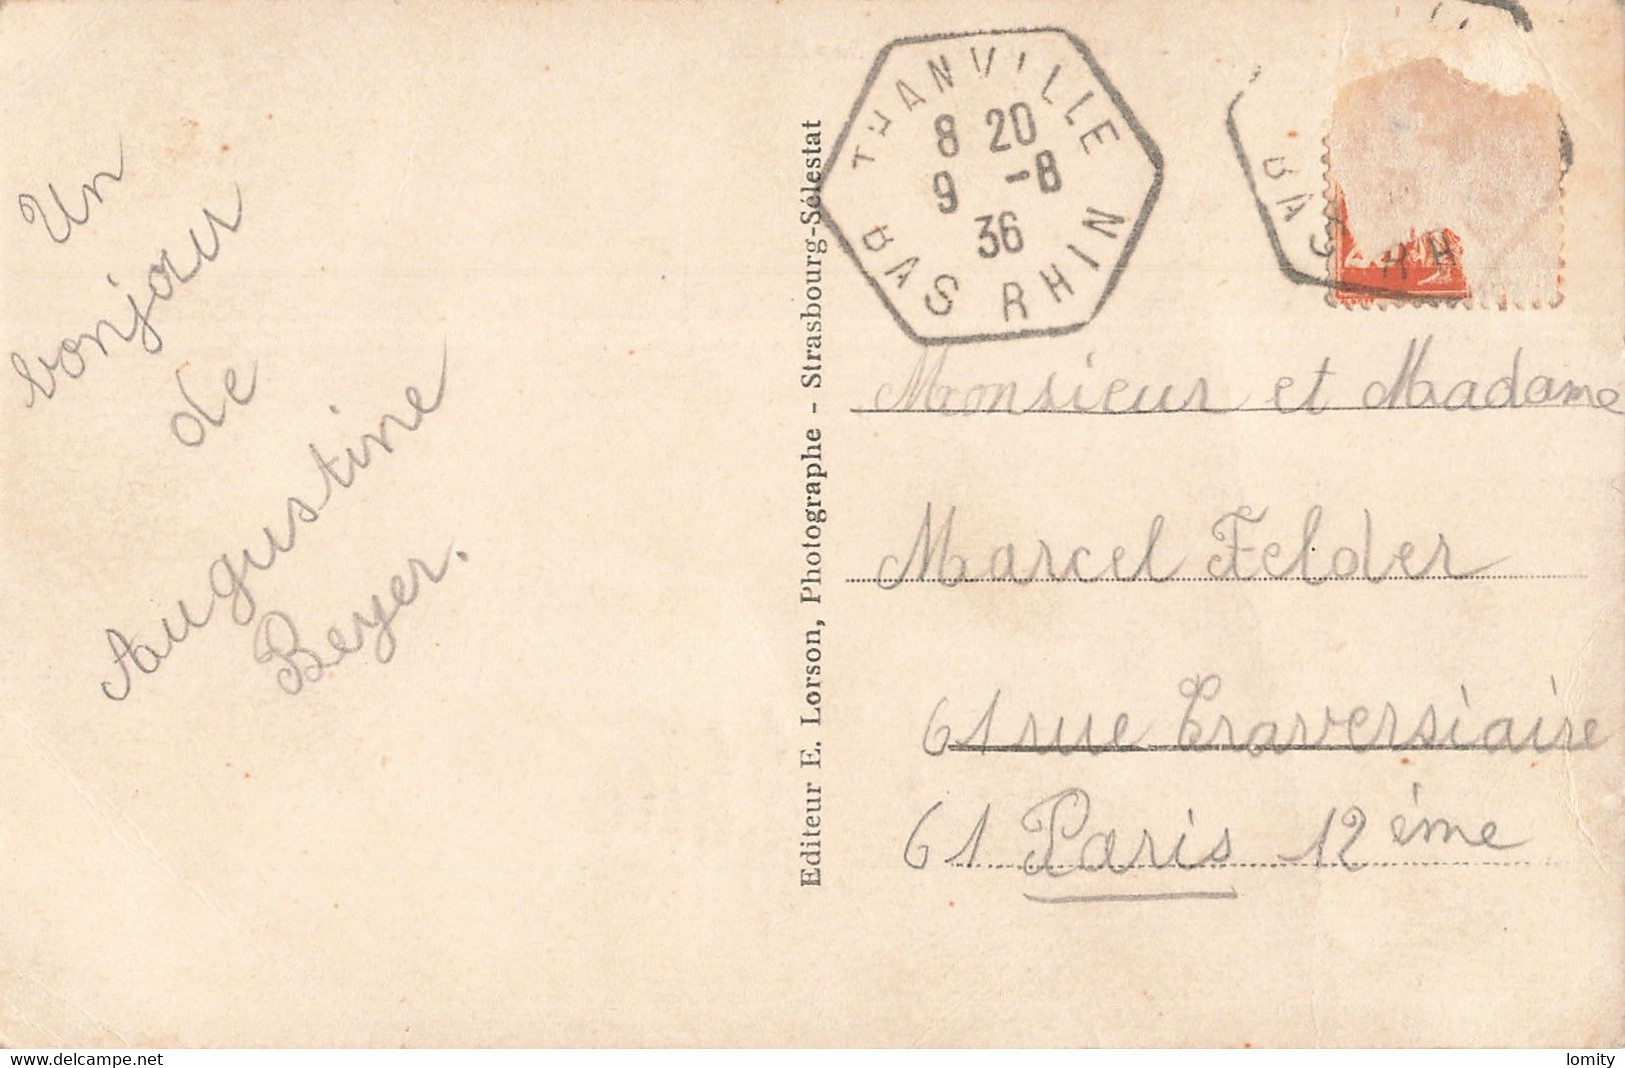 Un
bonjour
de
Augustine
Beyer.
Editeur E. Lorson, Photographe - Strasbourg-Sélestat
THANVILLE
8 20
9 -8
36
BAS RHIN
BAS RH
Monsieur et Madame
Marcel Felder
61 rue Traversiaire
61 Paris 12ème
delcampe.net
lomity